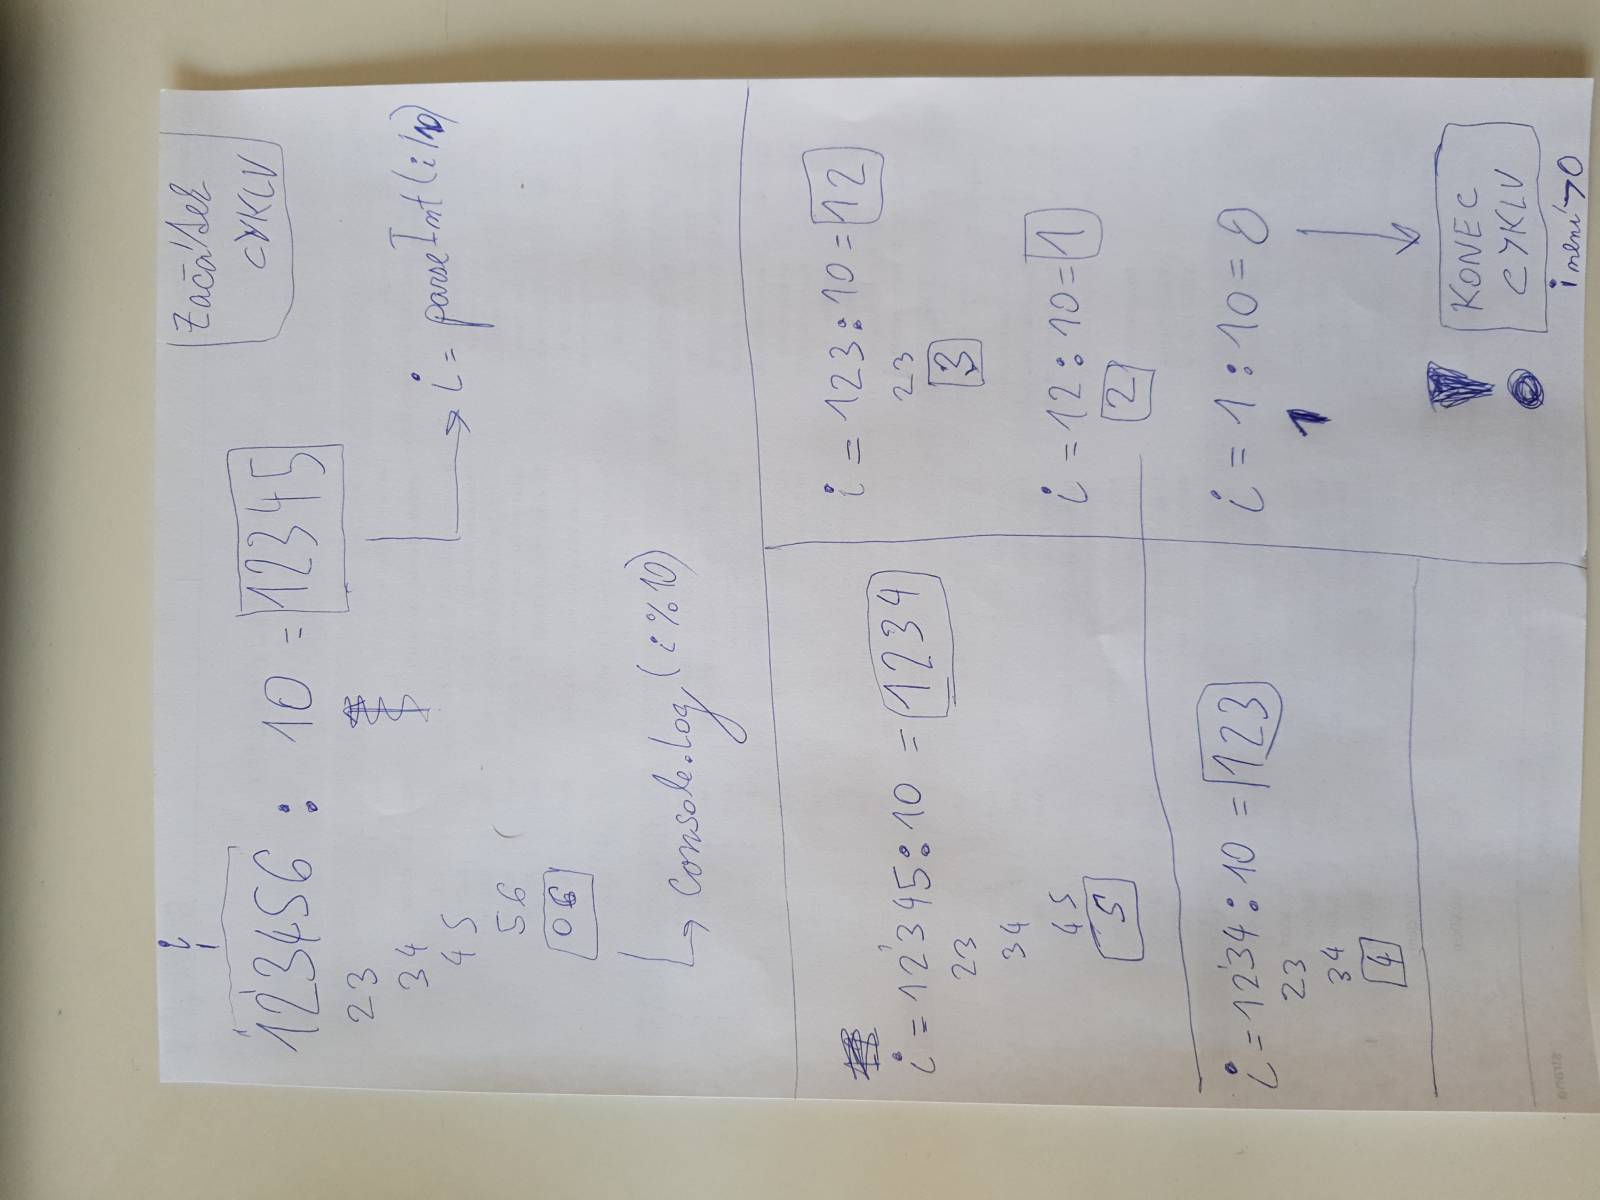 Začátek
cyklu
i
123456 : 10 = 12345
23
34
45
56
06
i = parseInt(i/10)
Console.log(i%10)
i = 12345:10 = 1234
23
34
45
5
i = 1234:10 = 123
23
34
4
i = 123:10 = 12
23
3
i = 12:10 = 1
2
i = 1:10 = 0
1
KONEC
CYKLU
i není > 0